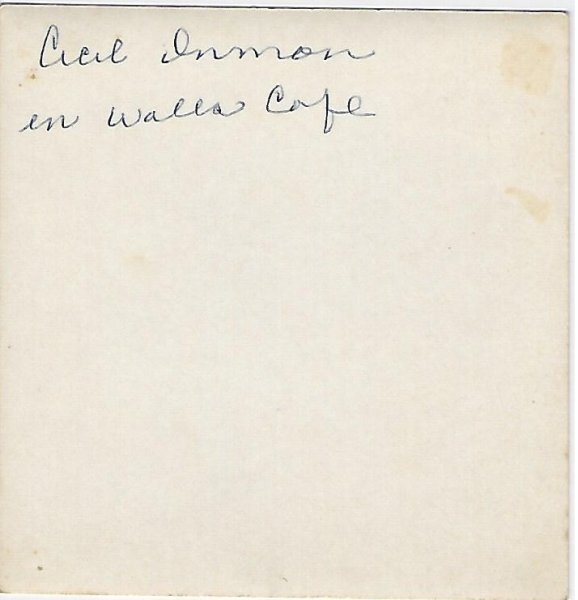 Cecil Inman
in Walla Cafe